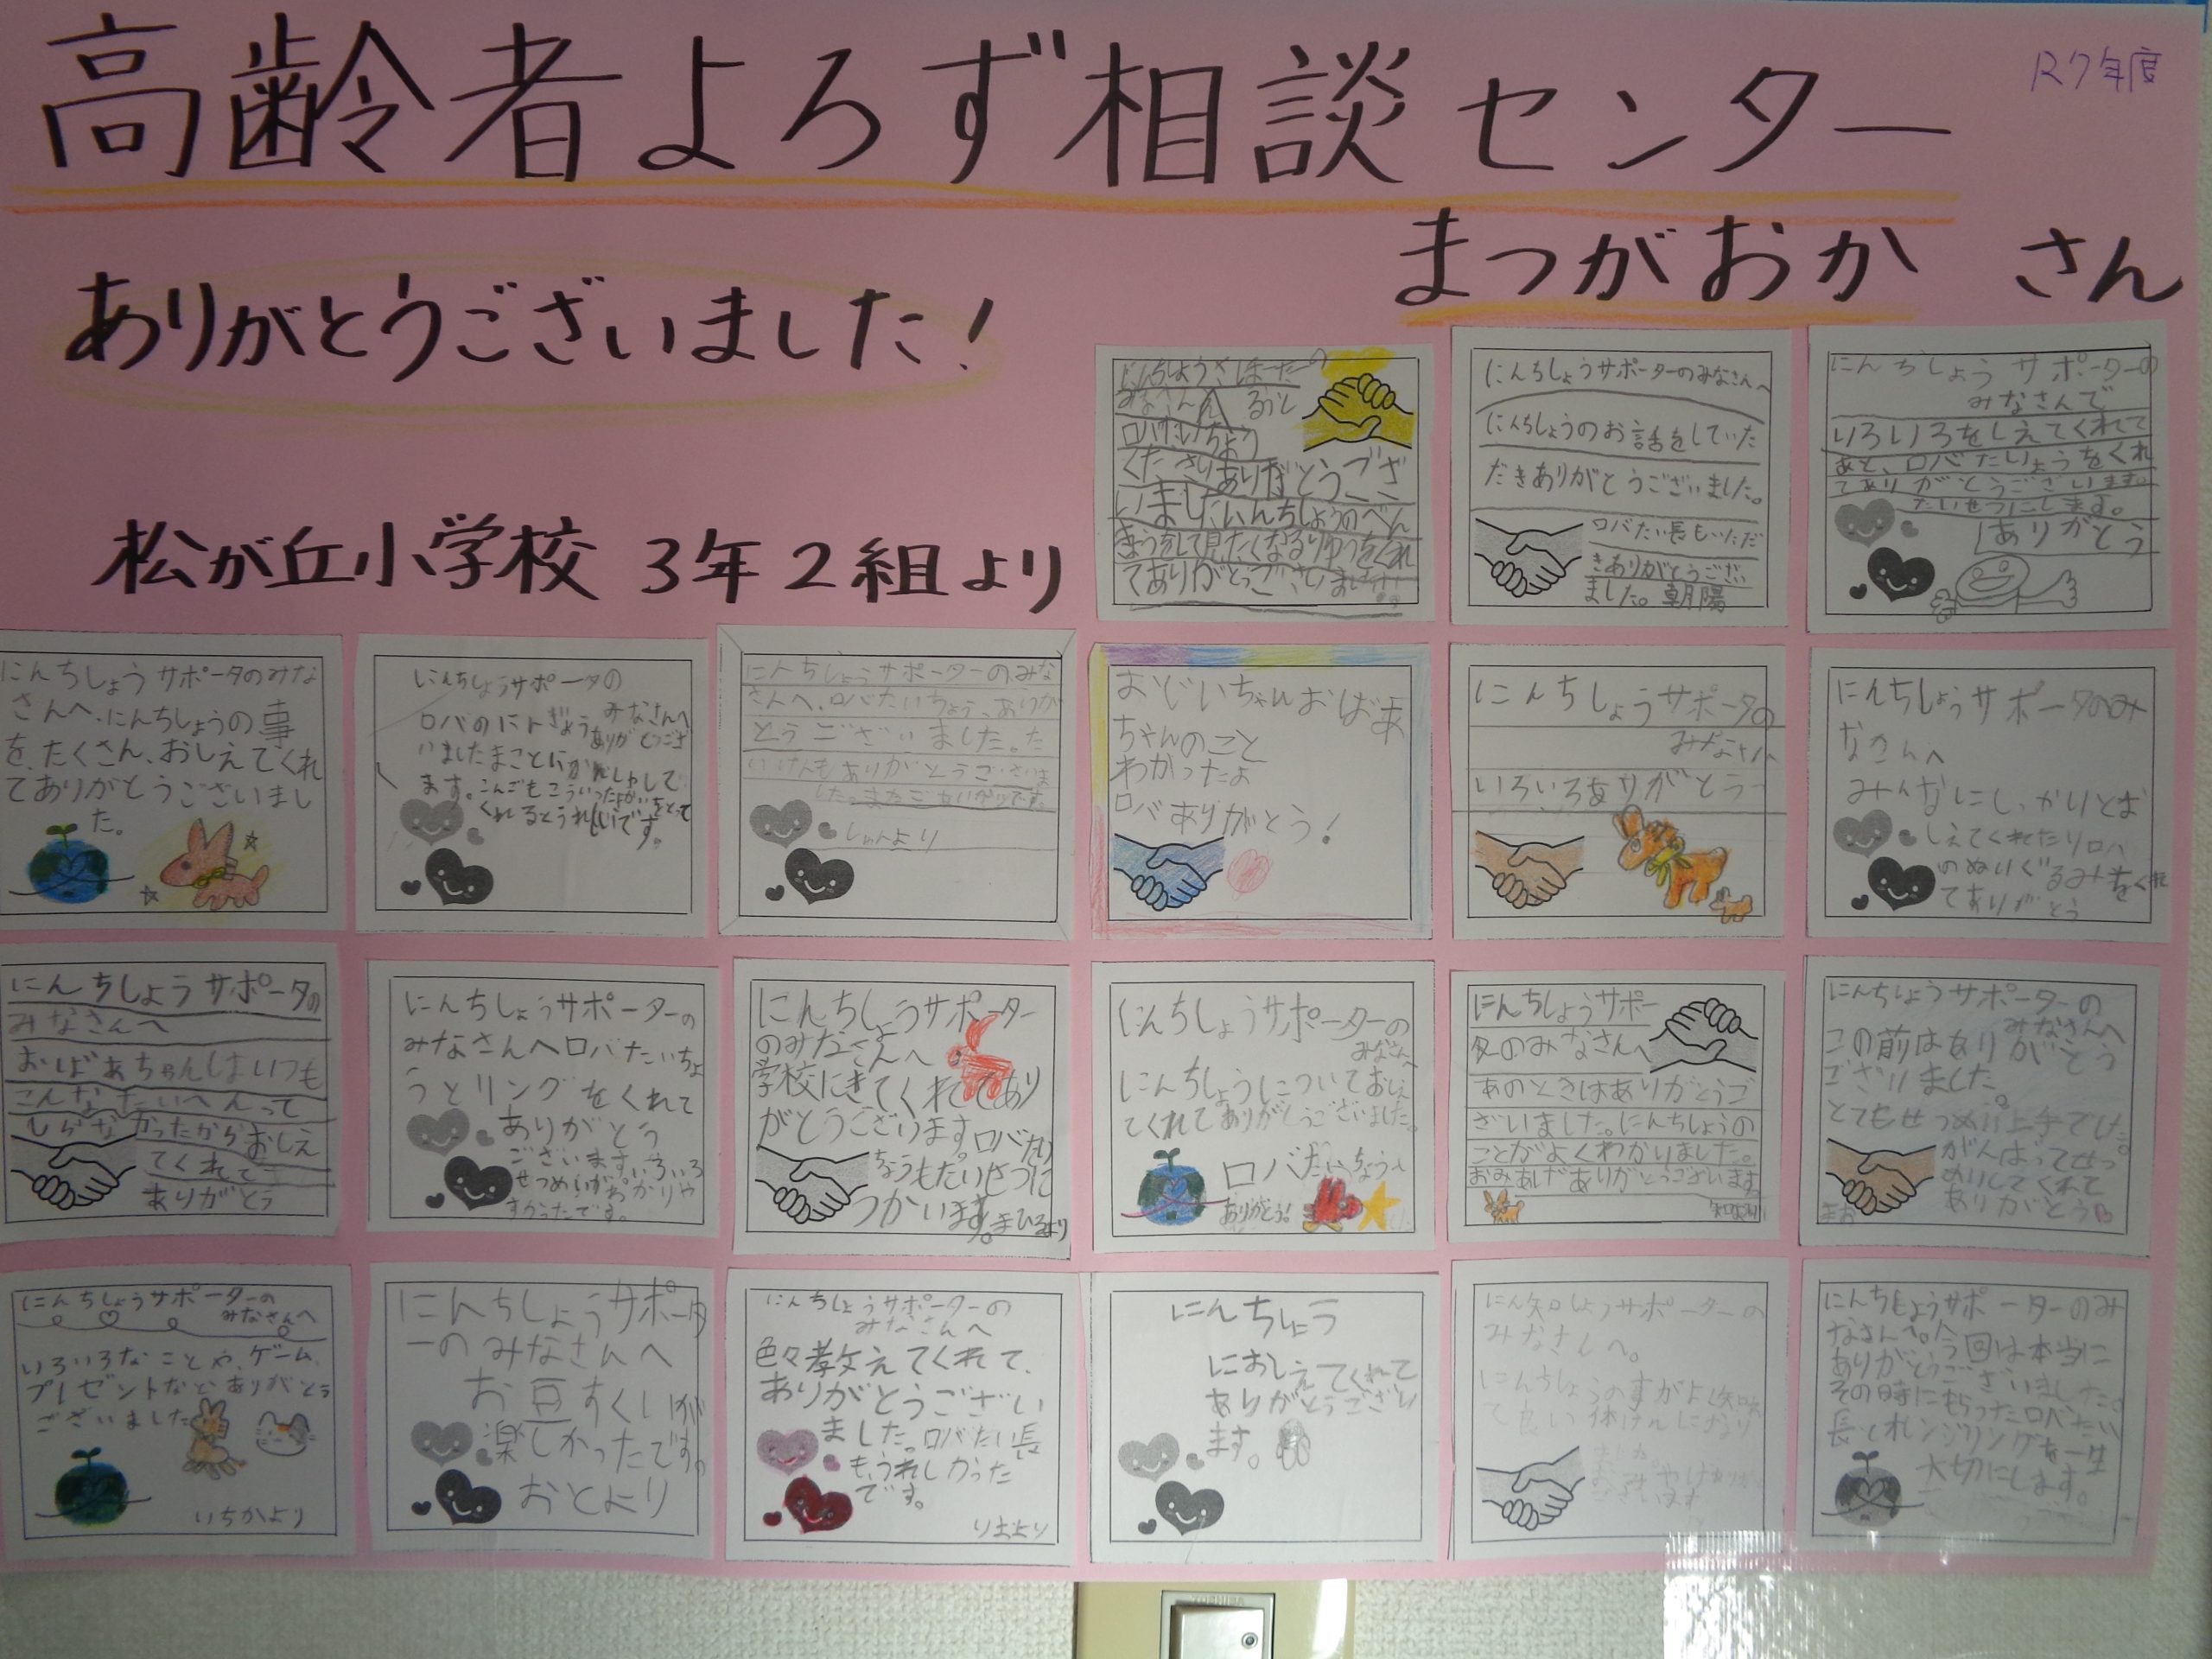 高齢者よろず相談センター
R7年度
まつがおか さん
ありがとうございました!
松が丘小学校 3年2組より
みなさんへ
ロバたいちょう
くださりありがとうござ
いました
てありがとうございました
にんちしょうサポーターのみなさんへ
にんちしょうのお話をしていた
だきありがとうございました。
ロバたい長もいただ
きありがとうござい
ました。朝陽
にんちしょうサポーターの
みなさんで
いろいろをしえてくれて
あと、ロバたいしょうをくれ
てありがとうございます。
たいせつにします。
ありがとう
にんちしょうサポータのみな
さんへ、にんちしょうの事
を、たくさん、おしえてくれ
てありがとうございまし
た。
にんちしょうサポータの
みなさんへ
ロバのにんぎょうありがとうござ
いましたまことにかんしゃして
ます。こんごもこういった
くれるとうれしいです。
にんちしょうサポーターのみな
さんへ、ロバたいちょう、ありが
とうございました。た
いけんもありがとうございま
した。
しゅんより
おじいちゃんおばあ
ちゃんのこと
わかったよ
ロバありがとう!
にんちしょうサポータの
みなさんへ
いろいろありがとう
にんちしょうサポータのみ
なさんへ
みんなにしっかりとお
しえてくれたりロバ
のぬいぐるみをくれ
てありがとう
にんちしょうサポータの
みなさんへ
おばあちゃんはいつも
こんなたいへんって
しらなかったからおしえ
てくれて
ありがとう
にんちしょうサポーターの
みなさんへロバたいちょ
うとリングをくれて
ありがとう
ございます。いろいろ
せつめいがわかりや
すかったです。
にんちしょうサポーター
のみなさんへ
学校にきてくれてあり
がとうございます。ロバたい
ちょうもたいせつに
つかいます。まひろより
にんちしょうサポーターの
みなさんへ
にんちしょうについておしえ
てくれてありがとうございました。
ロバたいちょう
ありがとう!
にんちしょうサポー
ターのみなさんへ
あのときはありがとうご
ざいました。にんちしょうの
ことがよくわかりました。
おみあげありがとうございます
にんちしょうサポーターの
みなさんへ
この前はありがとう
ございました。
とてもせつめい上手でした。
がんばってせつ
めいしてくれて
ありがとう
まお
にんちしょうサポーターの
みなさんへ
いろいろなことや、ゲーム、
プレゼントなどありがとう
ございました
いちかより
にんちしょうサポータ
ーのみなさんへ
お豆すくいが
楽しかったです。
おとより
にんちしょうサポーターの
みなさんへ
色々教えてくれて、
ありがとうござい
ました。ロバたい長
も、うれしかった
です。
りおより
にんちしょう
におしえてくれて
ありがとうござい
ます。
にん知しょうサポーターの
みなさんへ。
にんちしょうサポーターのみ
なさんへ。今回は本当に
ありがとうございました。
その時にもらったロバたい
長とオレンジリングを一生
大切にします。
TOSHIBA